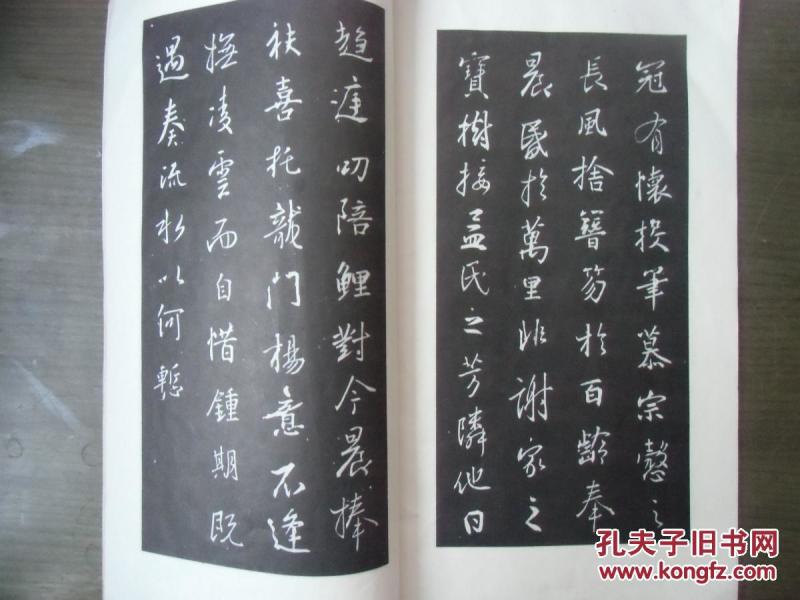 冠有懷投筆慕宗愨之
長風捨簪笏於百齡奉
晨昏於萬里非謝家之
寶樹接孟氏之芳隣他日
趨庭叨陪鯉對今晨捧
袂喜托龍門楊意不逢
撫凌雲而自惜鍾期既
遇奏流水以何慙
孔夫子旧书网
www.kongfz.com